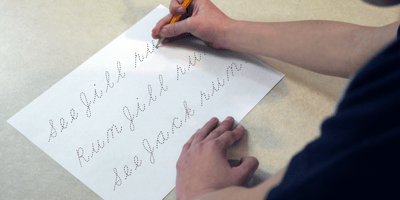 See Jill ru
Run Jill ru
See Jack run